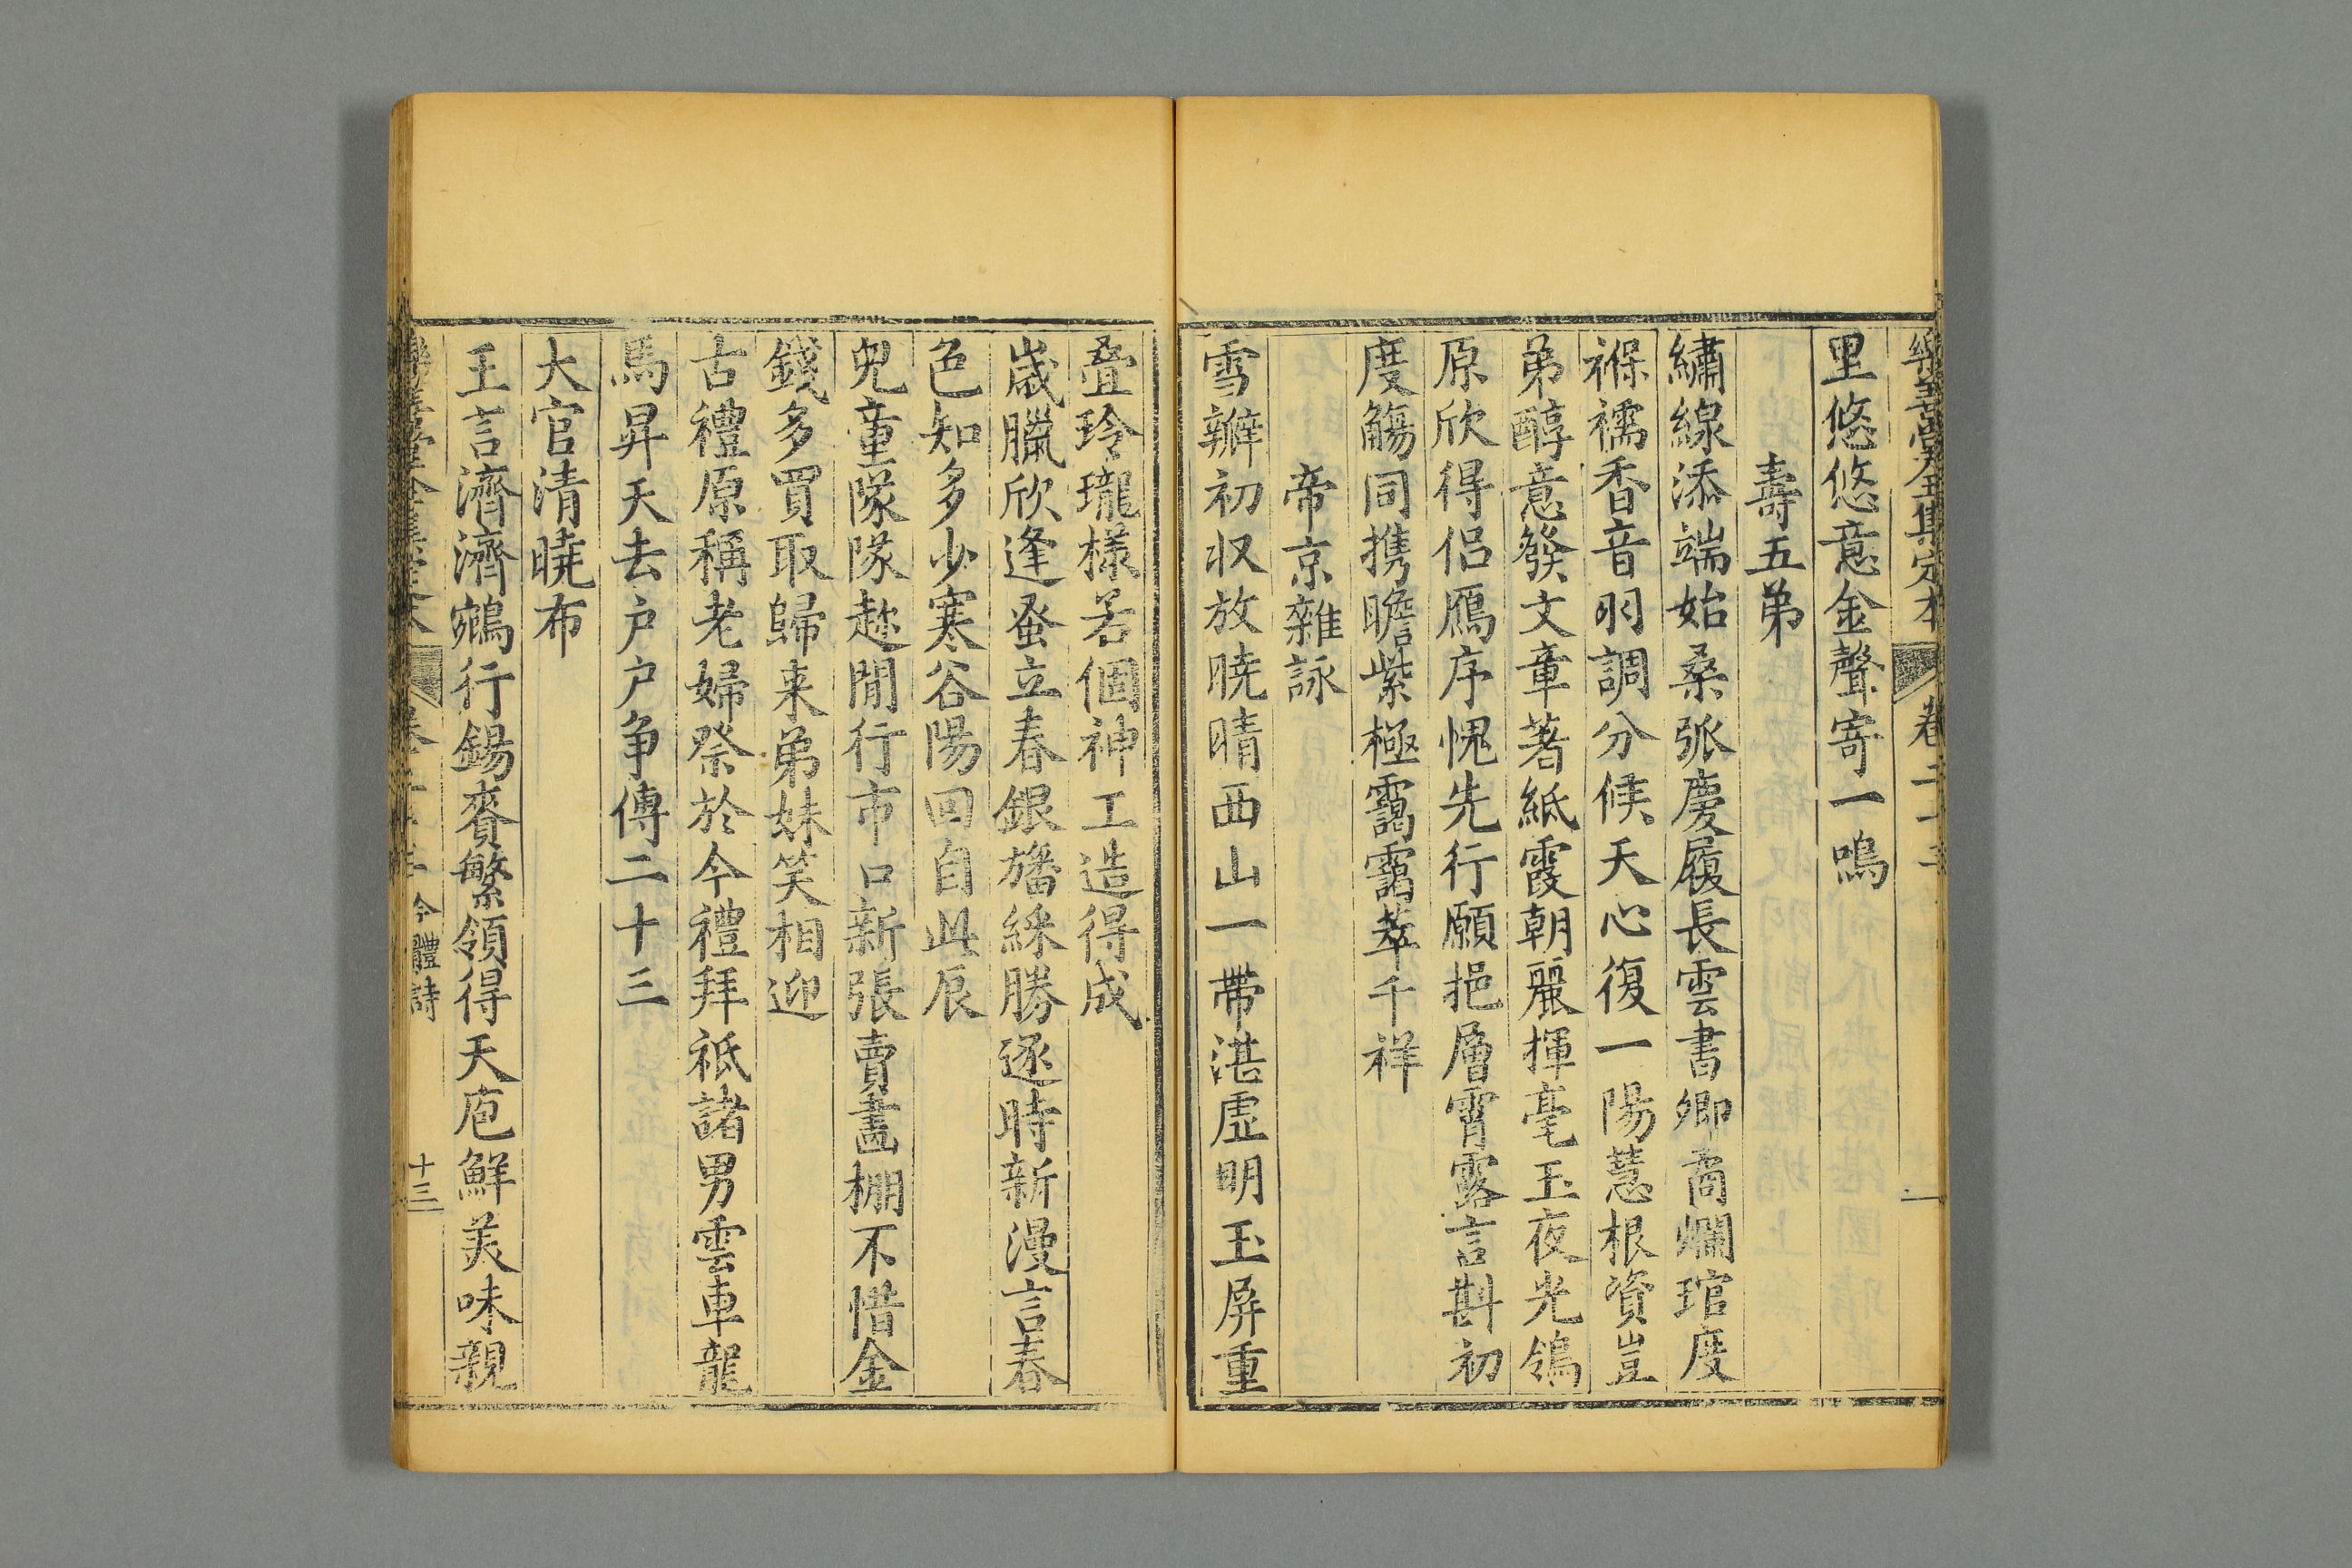 樂善堂全集定本 卷二十三
里悠悠意金聲寄一鳴
壽五弟
繡線添端始桑弧慶履長雲書卿矞爛琯度
褓襦香音羽調分候天心復一陽慧根資豈
弟醇意發文章著紙霞朝麗揮毫玉夜光鴒
原欣得侶鴈序愧先行願挹層霄露言斟初
度觴同携瞻紫極靄靄萃千祥
帝京雜詠
雪瓣初収放曉晴西山一帶湛虛明玉屏重
疊玲瓏樣若個神工造得成
歲臘欣逢蚤立春銀旛綵勝逐時新漫言春
色知多少寒谷陽回自此辰
兒童隊隊趂閒行市口新張賣畫棚不惜金
錢多買取歸来弟妹笑相迎
古禮原稱老婦祭於今禮拜祗諸男雲車龍
馬昇天去户户争傳二十三
大官清曉布
王言濟濟鵷行錫賚繁領得天庖鮮美味親
樂善堂全集定本 卷二十三 今體詩 十三